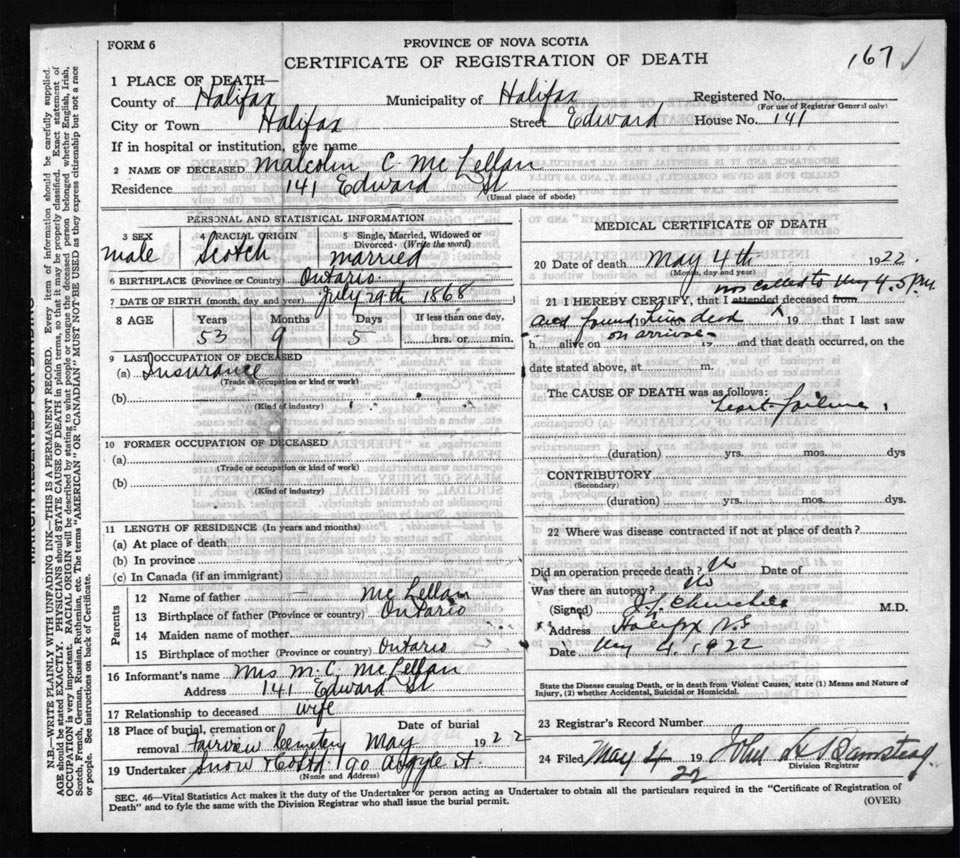 FORM 6
PROVINCE OF NOVA SCOTIA
CERTIFICATE OF REGISTRATION OF DEATH
167 ✓
1 PLACE OF DEATH—
County of Halifax Municipality of Halifax Registered No.
(For use of Registrar General only)
City or Town Halifax Street Edward House No. 141
If in hospital or institution, give name
2 NAME OF DECEASED Malcolm C. McLellan
Residence 141 Edward St
(Usual place of abode)
PERSONAL AND STATISTICAL INFORMATION
3 SEX 4 RACIAL ORIGIN 5 Single, Married, Widowed or Divorced- (Write the word)
male Scotch married
6 BIRTHPLACE (Province or Country) Ontario
7 DATE OF BIRTH (month, day and year) July 29th 1868
8 AGE Years Months Days If less than one day,
53 9 5 hrs. or min.
9 LAST OCCUPATION OF DECEASED
(a) Insurance
(Trade or occupation or kind or work)
(b)
(Kind of industry)
10 FORMER OCCUPATION OF DECEASED
(a)
(Trade or occupation or kind of work)
(b)
(Kind of industry)
11 LENGTH OF RESIDENCE (In years and months)
(a) At place of death
(b) In province
(c) In Canada (if an immigrant)
Parents
12 Name of father McLellan
13 Birthplace of father (Province or country) Ontario
14 Maiden name of mother
15 Birthplace of mother (Province or country) Ontario
16 Informant's name Mrs M. C. McLellan
Address 141 Edward St
17 Relationship to deceased wife
18 Place of burial, cremation or removal Fairview Cemetery Date of burial May 1922
19 Undertaker Snow & Co Ltd 90 Argyle St.
(Name and Address)
MEDICAL CERTIFICATE OF DEATH
20 Date of death May 4th 1922
(Month, day and year)
was called to May 4. 5 P.M.
21 I HEREBY CERTIFY, that I attended deceased from
and found him dead 19 that I last saw
on arrival
h alive on 19 and that death occurred, on the
date stated above, at m.
The CAUSE OF DEATH was as follows:
heart failure
(duration) yrs. mos. dys
CONTRIBUTORY
(Secondary)
(duration) yrs. mos. dys.
22 Where was disease contracted if not at place of death?
Did an operation precede death? No Date of
Was there an autopsy? No
(Signed) M.D.
Address Halifax N.S
Date May 4, 1922
State the Disease causing Death, or in death from Violent Causes, state (1) Means and Nature of Injury, (2) whether Accidental, Suicidal or Homicidal.
23 Registrar's Record Number
24 Filed May 4 1922 John
Division Registrar
SEC. 46—Vital Statistics Act makes it the duty of the Undertaker or person acting as Undertaker to obtain all the particulars required in the "Certificate of Registration of
Death" and to fyle the same with the Division Registrar who shall issue the burial permit.
(OVER)
N.B.—WRITE PLAINLY WITH UNFADING INK—THIS IS A PERMANENT RECORD. Every item of information should be carefully supplied.
AGE should be stated EXACTLY. PHYSICIANS should STATE CAUSE OF DEATH in plain terms, so that it may be properly classified. Exact statement of
OCCUPATION is very important. RACIAL ORIGIN will be described by stating to what people or tongue the deceased person belonged whether English, Irish,
Scotch, French, German, Russian, Ruthenian, etc. The terms "AMERICAN" OR "CANADIAN" MUST NOT BE USED as they express citizenship but not a race
or people. See instructions on back of Certificate.